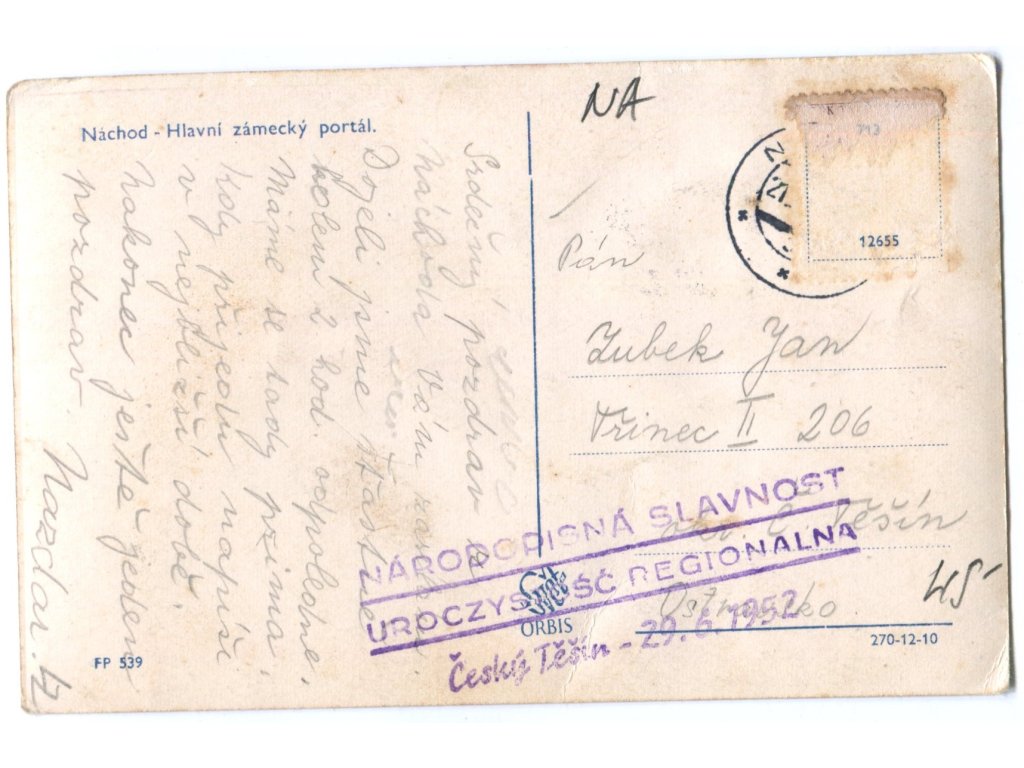 Náchod - Hlavní zámecký portál.
NA
K
713
12655
Srdečný pozdrav z
Náchoda Vám
Dojeli jsme šťastně
kolem 2 hod. odpoledne.
Máme se tady prima.
Kdy přijedu napíši
v nejbližší době.
Nakonec ještě jeden
pozdrav. Nazdar.
Pán
Zubek Jan
Třinec II 206
Č. Těšín
Ostravsko
NÁRODOPISNÁ SLAVNOST
UROCZYSTOŚĆ REGIONALNA
Český Těšín - 29. 6. 1952
ORBIS
45-
270-12-10
FP 539